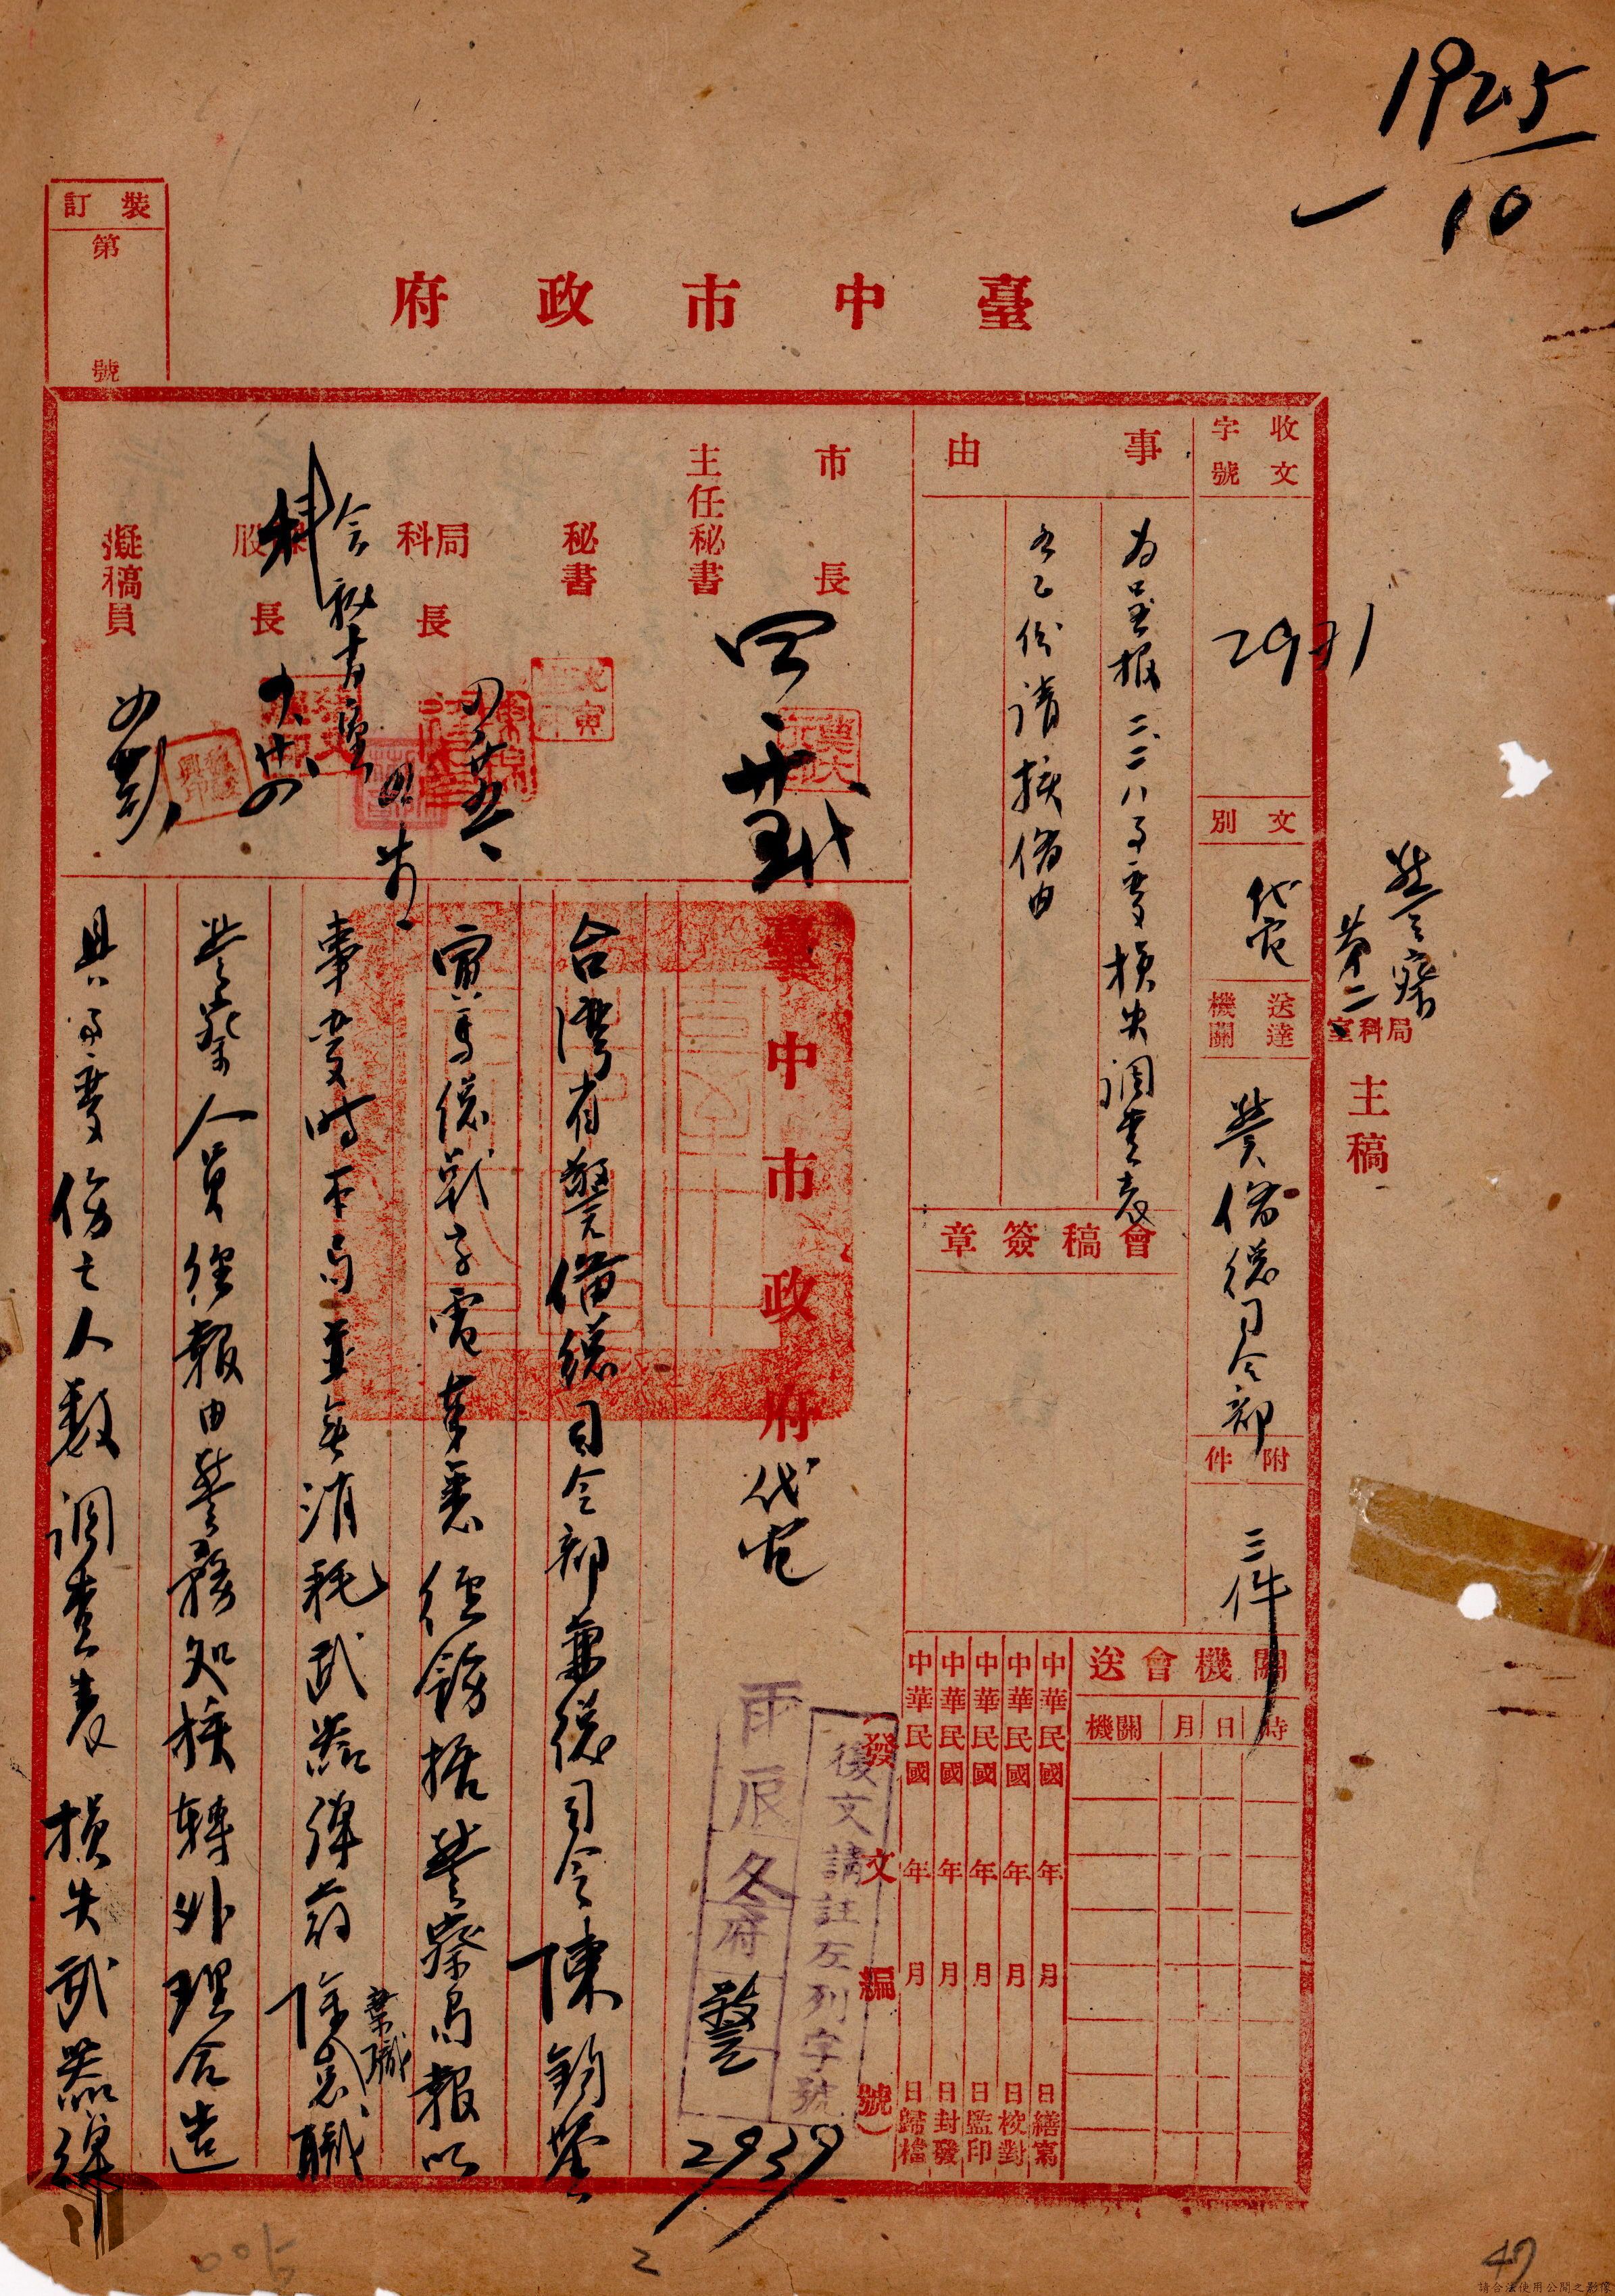 1925
10
臺中市政府
裝訂
第 號
收文字號
2971
文別
代電
送達機關
警備總司令部
附件
三件
警察局
第二科
局科室主稿
事由
為呈報二二八事變損失調查表
各乙份請核備由
會稿簽章
關機會送
機關 月 日 時
中華民國 年 月 日繕寫
中華民國 年 月 日校對
中華民國 年 月 日監印
中華民國 年 月 日封發
中華民國 年 月 日歸檔
發文編號
市長
主任秘書
秘書
局科長
股長
擬稿員
會秘書室
臺中市政府代電
復文請註左列字號
雨辰冬府
警
2939
台灣省警備總司令部兼總司令陳鈞鑒
寅馬總戰字電奉悉經飭据警察局報以
事變時本局並無消耗武器彈葯除
棄職
警察人員經報由警務處核轉外理合造
具事變傷亡人數調查表損失武器彈
2
47
請合法使用公開之影像